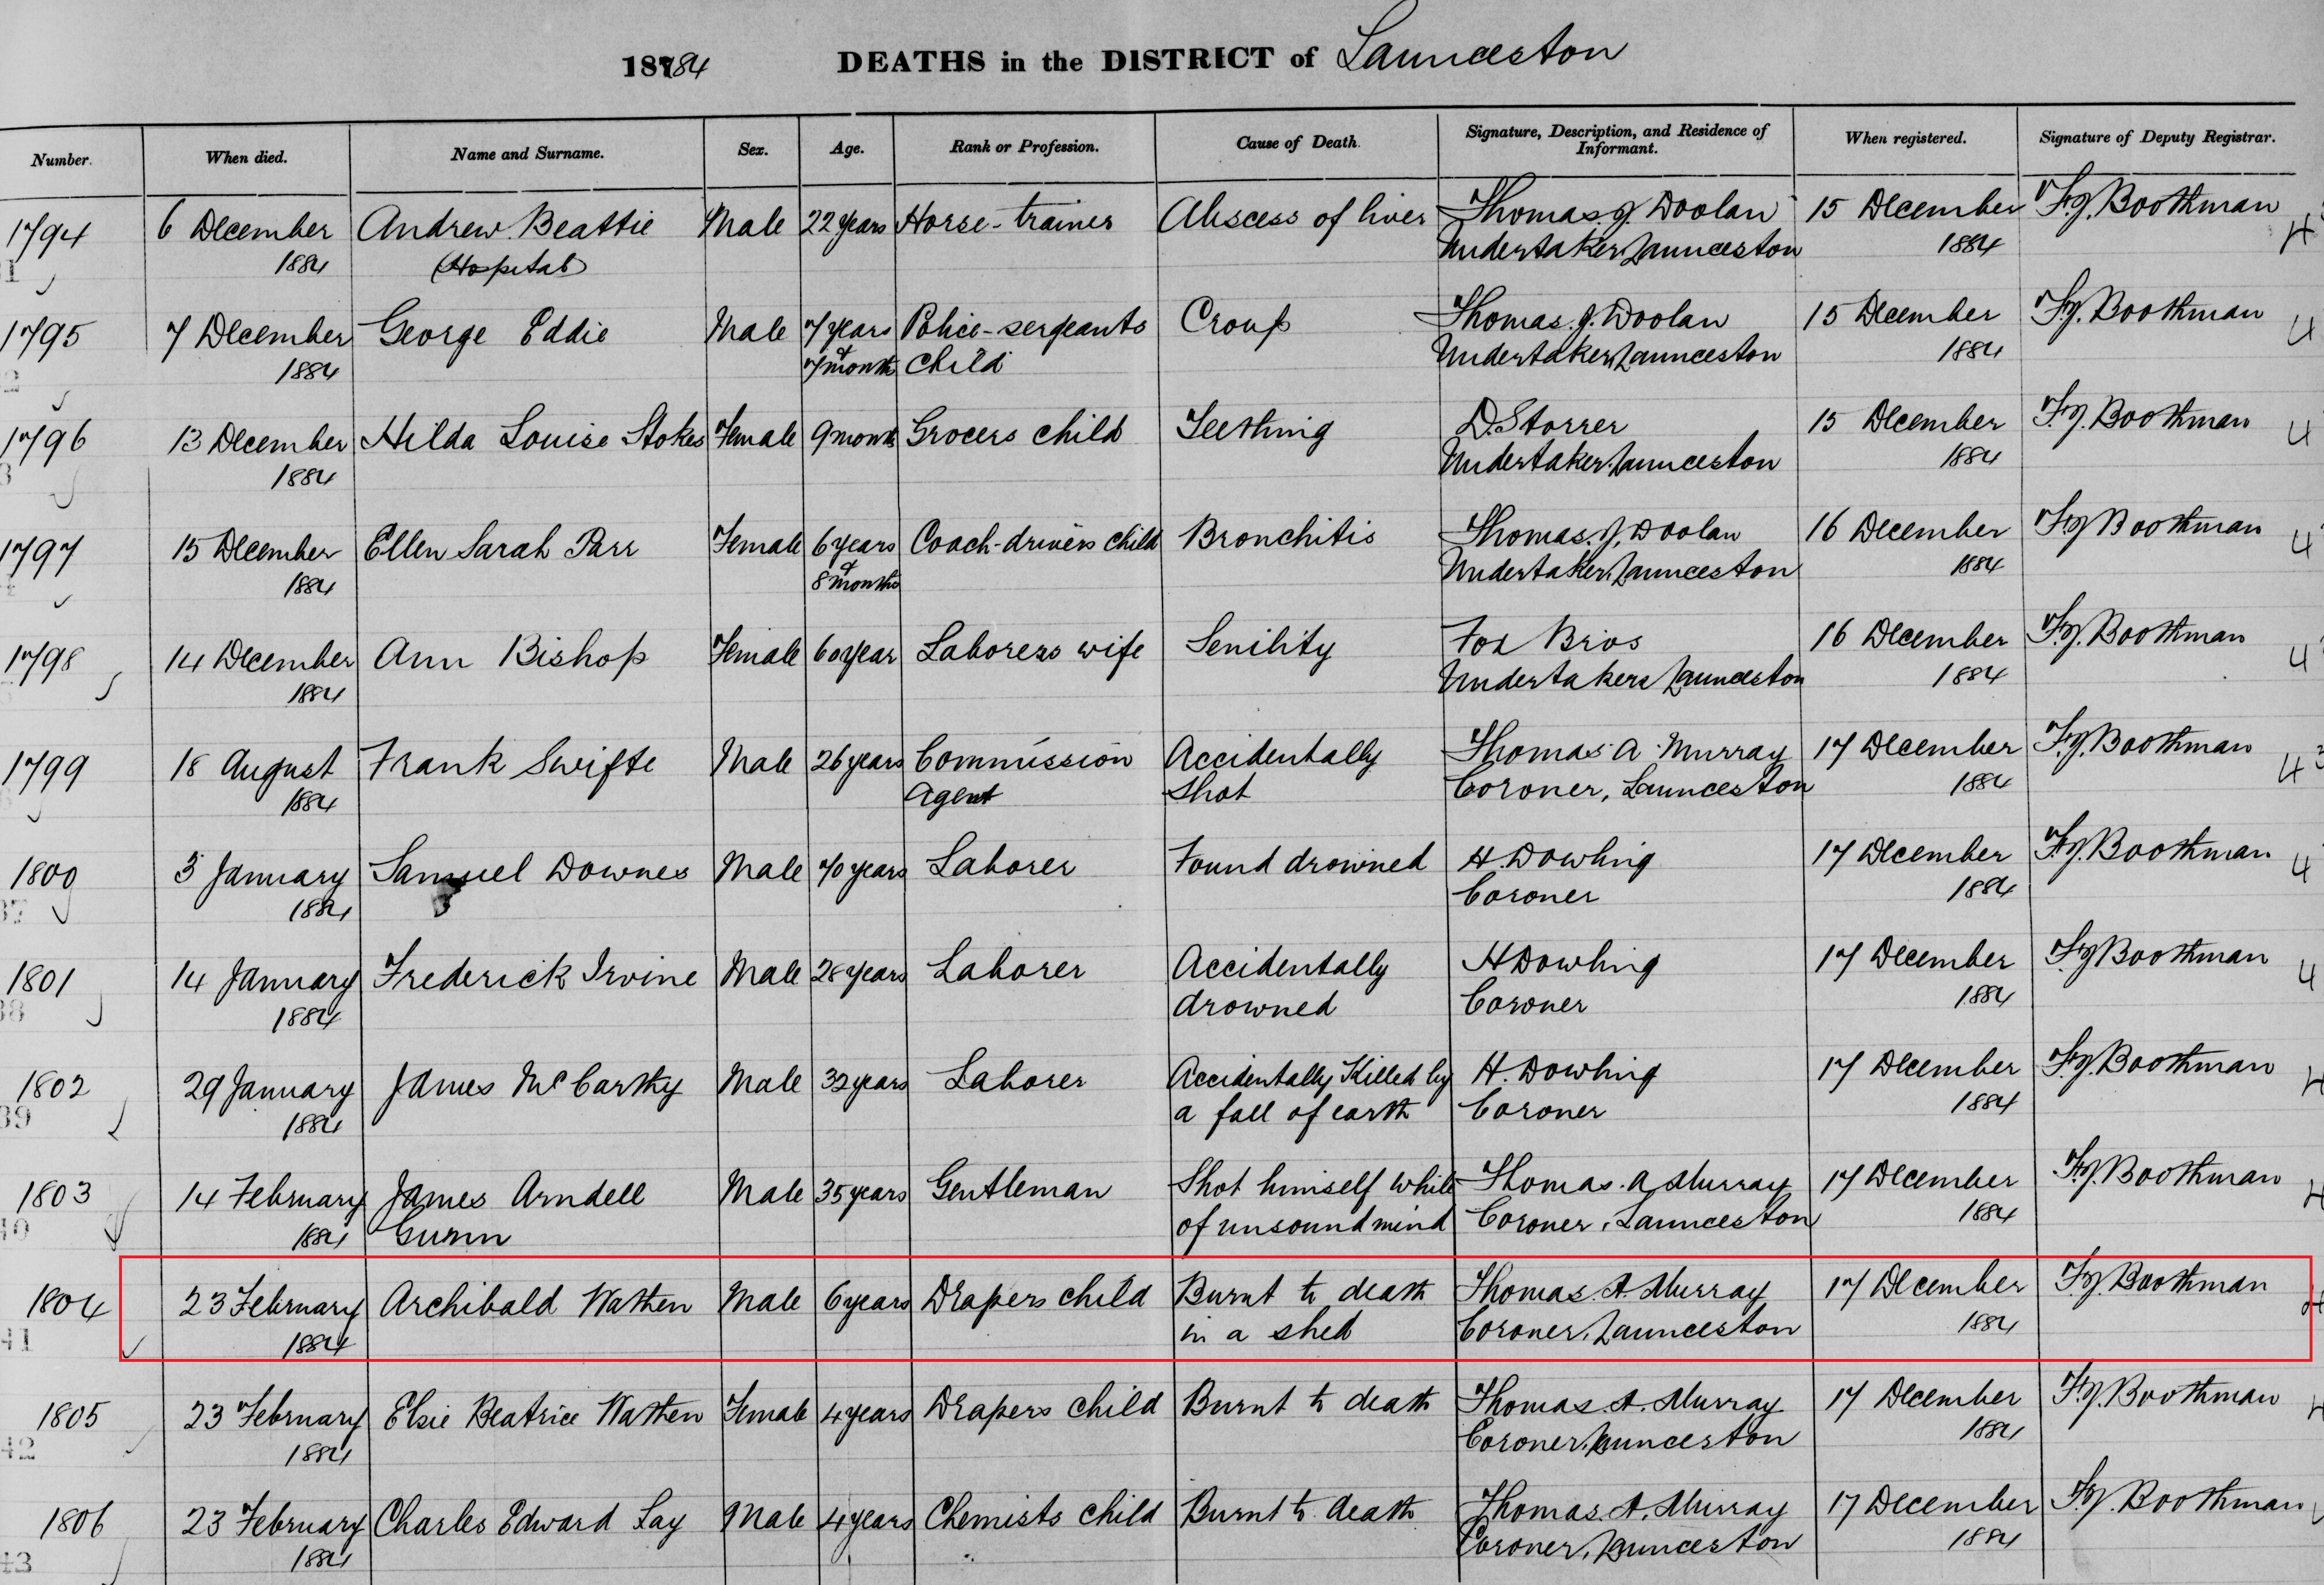 1884 DEATHS in the DISTRICT of Launceston
Number. When died. Name and Surname. Sex. Age. Rank or Profession. Cause of Death. Signature, Description, and Residence of Informant. When registered. Signature of Deputy Registrar.
1794 6 December Andrew Beattie Male 22 years Horse-trainer Abscess of liver Thomas J. Doolan 15 December F.G. Boothman
1884 (Hospital) Undertaker, Launceston 1884
1795 7 December George Eddie Male 7 years Police-sergeants Croup Thomas. J. Doolan 15 December F.G. Boothman
1884 & 7 month child Undertaker, Launceston 1884
1796 13 December Hilda Louise Stokes Female 9 month Grocers child Teething D. Storrer 15 December F.G. Boothman
1884 Undertaker, Launceston 1884
1797 15 December Ellen Sarah Parr Female 6 years Coach-drivers child Bronchitis Thomas. J. Doolan 16 December F.G. Boothman
1884 & 8 months Undertaker, Launceston 1884
1798 14 December Ann Bishop Female 60 year Laborers wife Senility Fox Bros 16 December F.G. Boothman
1884 Undertakers Launceston 1884
1799 18 August Frank Swifte Male 26 years Commission Accidentally Thomas A. Murray 17 December F.G. Boothman
1884 Agent Shot Coroner, Launceston 1884
1800 3 January Samuel Downes Male 70 years Laborer Found drowned H. Dowling 17 December F.G. Boothman
1884 Coroner 1884
1801 14 January Frederick Irvine Male 28 years Laborer Accidentally H Dowling 17 December F.G. Boothman
1884 drowned Coroner 1884
1802 29 January James McCarthy Male 32 years Laborer Accidentally Killed by H. Dowling 17 December F.G. Boothman
1884 a fall of earth Coroner 1884
1803 14 February James Arndell Male 35 years Gentleman Shot himself while Thomas. A Murray 17 December F.G. Boothman
1884 Gunn of unsound mind Coroner, Launceston 1884
1804 23 February Archibald Wathen Male 6 years Drapers child Burnt to death Thomas. A. Murray 17 December F.G. Boothman
1884 in a shed Coroner, Launceston 1884
1805 23 February Elsie Beatrice Wathen Female 4 years Drapers child Burnt to death Thomas. A. Murray 17 December F.G. Boothman
1884 Coroner, Launceston 1884
1806 23 February Charles Edward Lay Male 4 years Chemists child Burnt to death Thomas. A. Murray 17 December F.G. Boothman
1884 Coroner, Launceston 1884